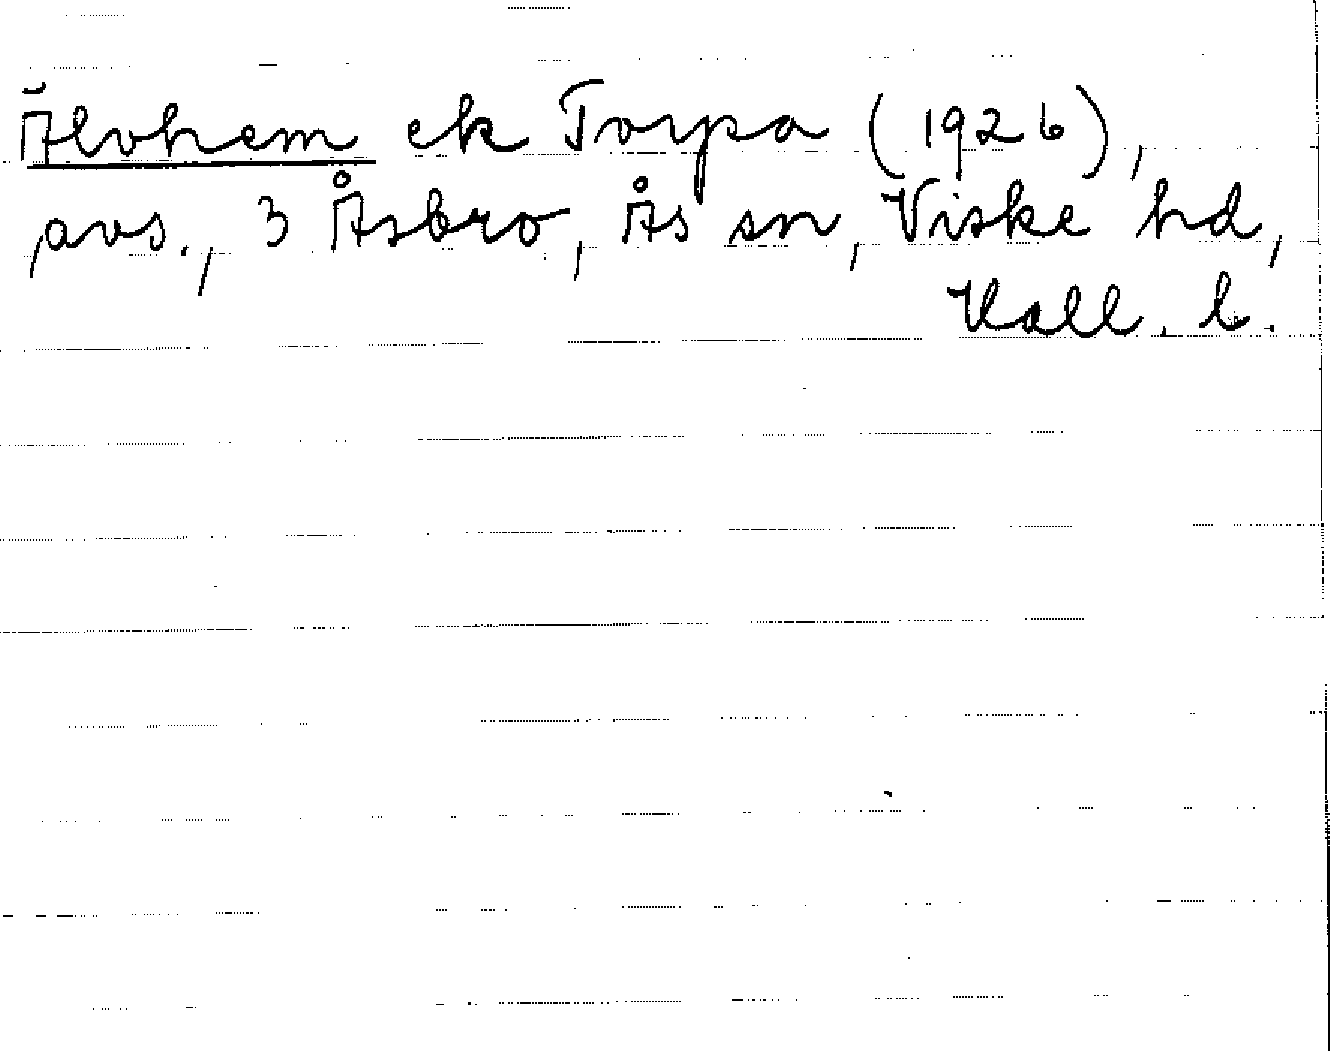 Älvhem ek Torpa (1926),
avs., 3 Åsbro, Ås sn, Viske hd,
Hall. l.